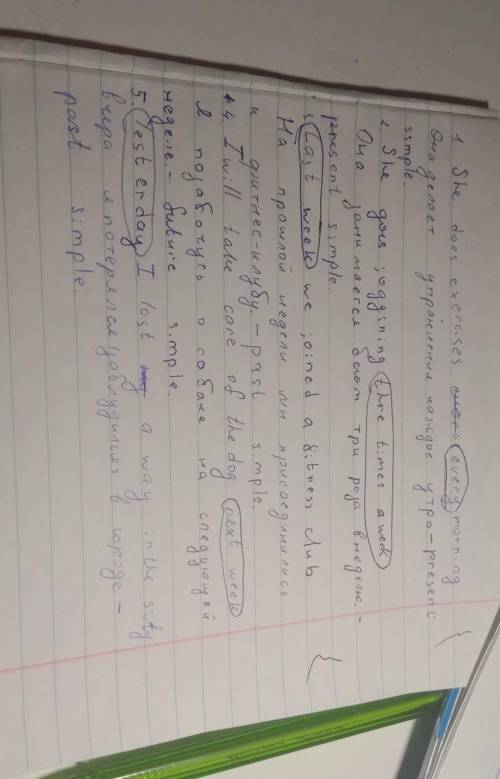 1 She does exercises every morning
Она делает упражнения каждое утро - present
simple.
2 She goes jogging three times a week
Она занимается бегом три раза в неделю. -
present simple.
3 Last week we joined a fitness club
На прошлой недели мы присоединились
к фитнес-клубу. - past simple.
4. I will take care of the dog next week
Я позабочусь о собаке на следующей
неделе. - future simple.
5. Yesterday I lost a way in the sity
вчера я потерялся, заблудился в городе -
past simple.